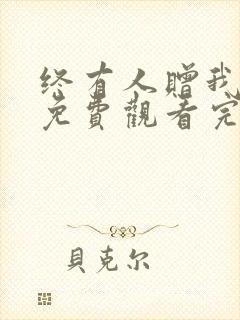 终有人赠我
免費觀看完
貝克尔